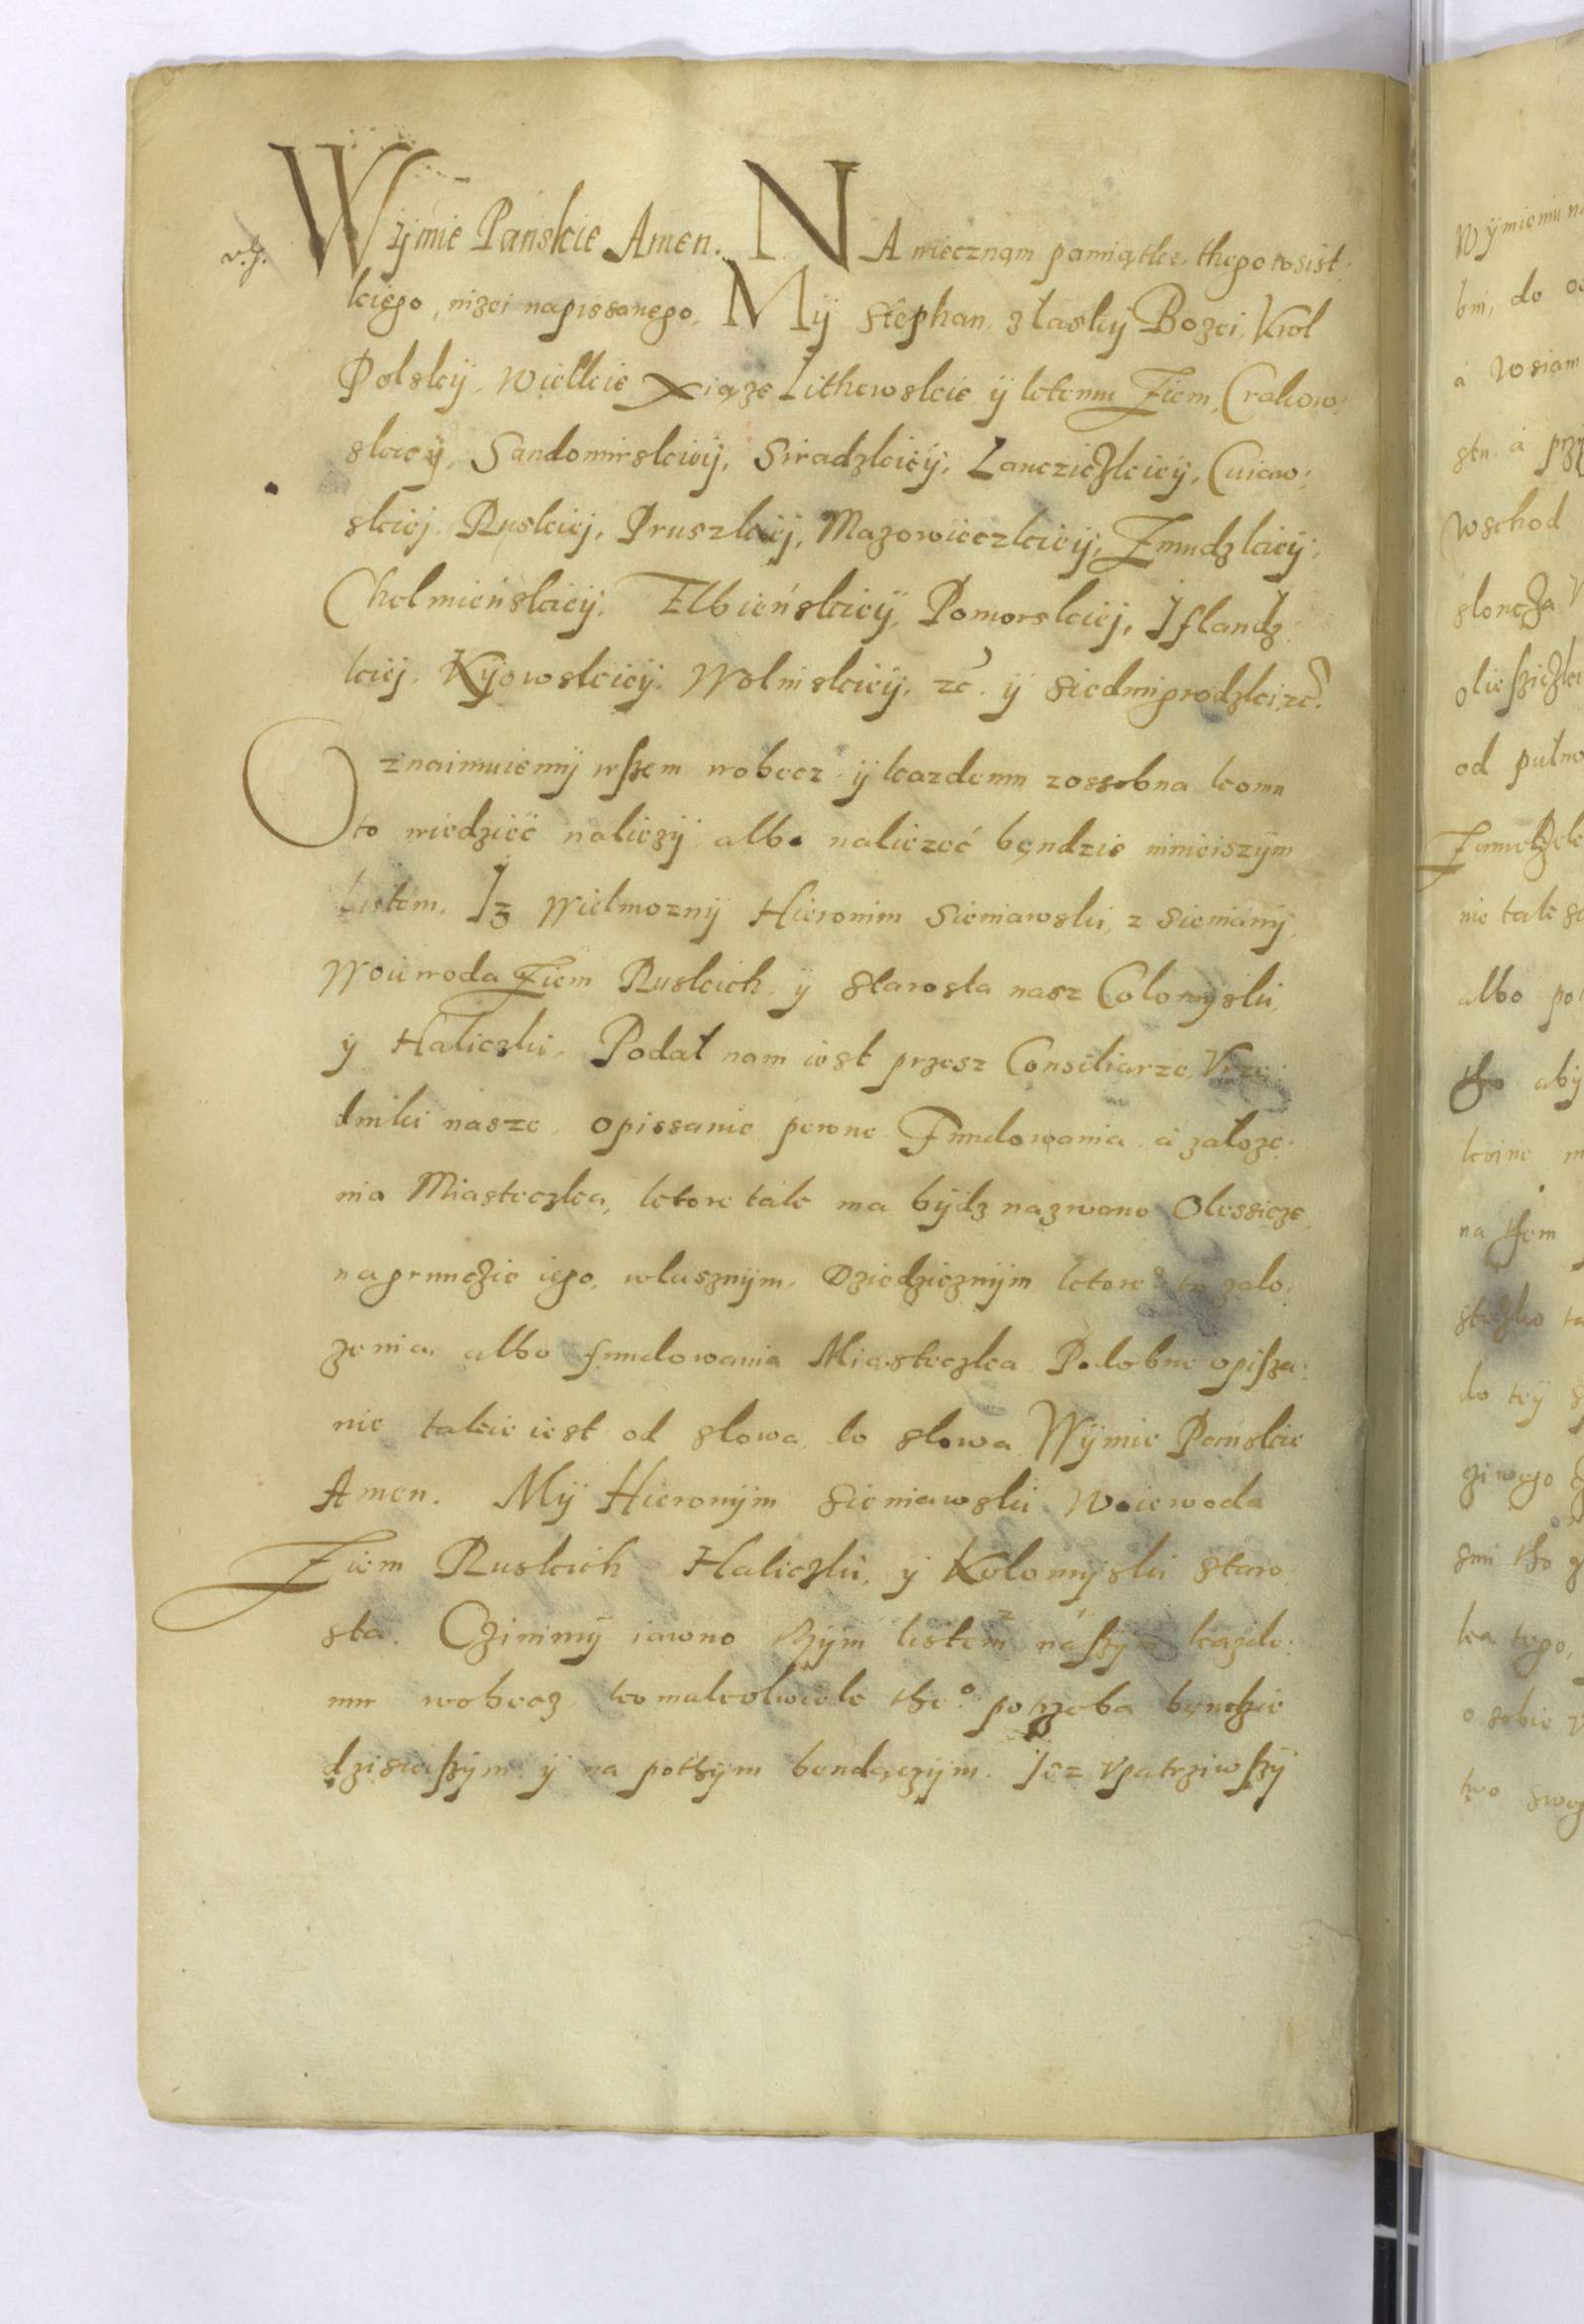 v. g.
W ÿmie Pańskie Amen. NA wiecznąm pamiątke, thego wsist:
kiego, nizei napissanego. Mÿ Stephan z łaskÿ Bozei, Krol
Polskÿ. Wielkie Xiąze Lithewskie ÿ ktemu Ziem, Crakow:
skieÿ, Sandomirskieÿ, Siradzkieÿ, Lancziczkieÿ, Cuiaw:
skiej. Ruskiej, Pruszkiej, Mazowieczkieÿ, Zmudzkieÿ,
Chelmieńskieÿ. Elbieńskieÿ, Pomorskiej, Jflandz
kiej. Kÿowskieÿ. Wolniskieÿ. zc̃. ÿ siedmigrodzkei, zc̃.
Oznaimuiemÿ wszem wobecz ÿ kazdemu zossobna komu
to wiedzieć naliezÿ albo naliezeć bęndzie ninieiszÿm
listem. Jz Wielmoznÿ Hieronim Sieniawski, z Sieniawÿ,
Woiewoda Ziem Ruskich ÿ starosta nasz Colomÿski,
ÿ Haliczki. Podał nam iest przesz Consiliarze, Vrze:
dniki nasze, opissanie pewne Fundowania à załoze:
nia Miasteczka, ktore tak ma bÿdz nazwano Olessicze
na grunczie iego, własznÿm. Dziedzicznÿm ktoreº tu zalo:
zenia, albo fundowania Miasteczka Podobne opisza:
nie takie iest od słowa do słowa Wÿmie Pańskie
Amen. Mÿ Hieronÿm Sieniawski Woiewoda
Ziem Ruskich Haliczki, ÿ Kolomÿski staro
sta. Czinimÿ iawno tÿm listem naszÿm kazde:
mu wobecz komukolwiek theº. potrzeba bęndzie
dzisieiszÿm ÿ na pothÿm bendączÿm. Jez vpatrziwszÿ
Wÿmieniu
do
à wsiam
stu à
Wschod
sloncza
od pułno
nie tak
albo
tho abÿ
na them
do teÿ
ka tego,
o sobie
two